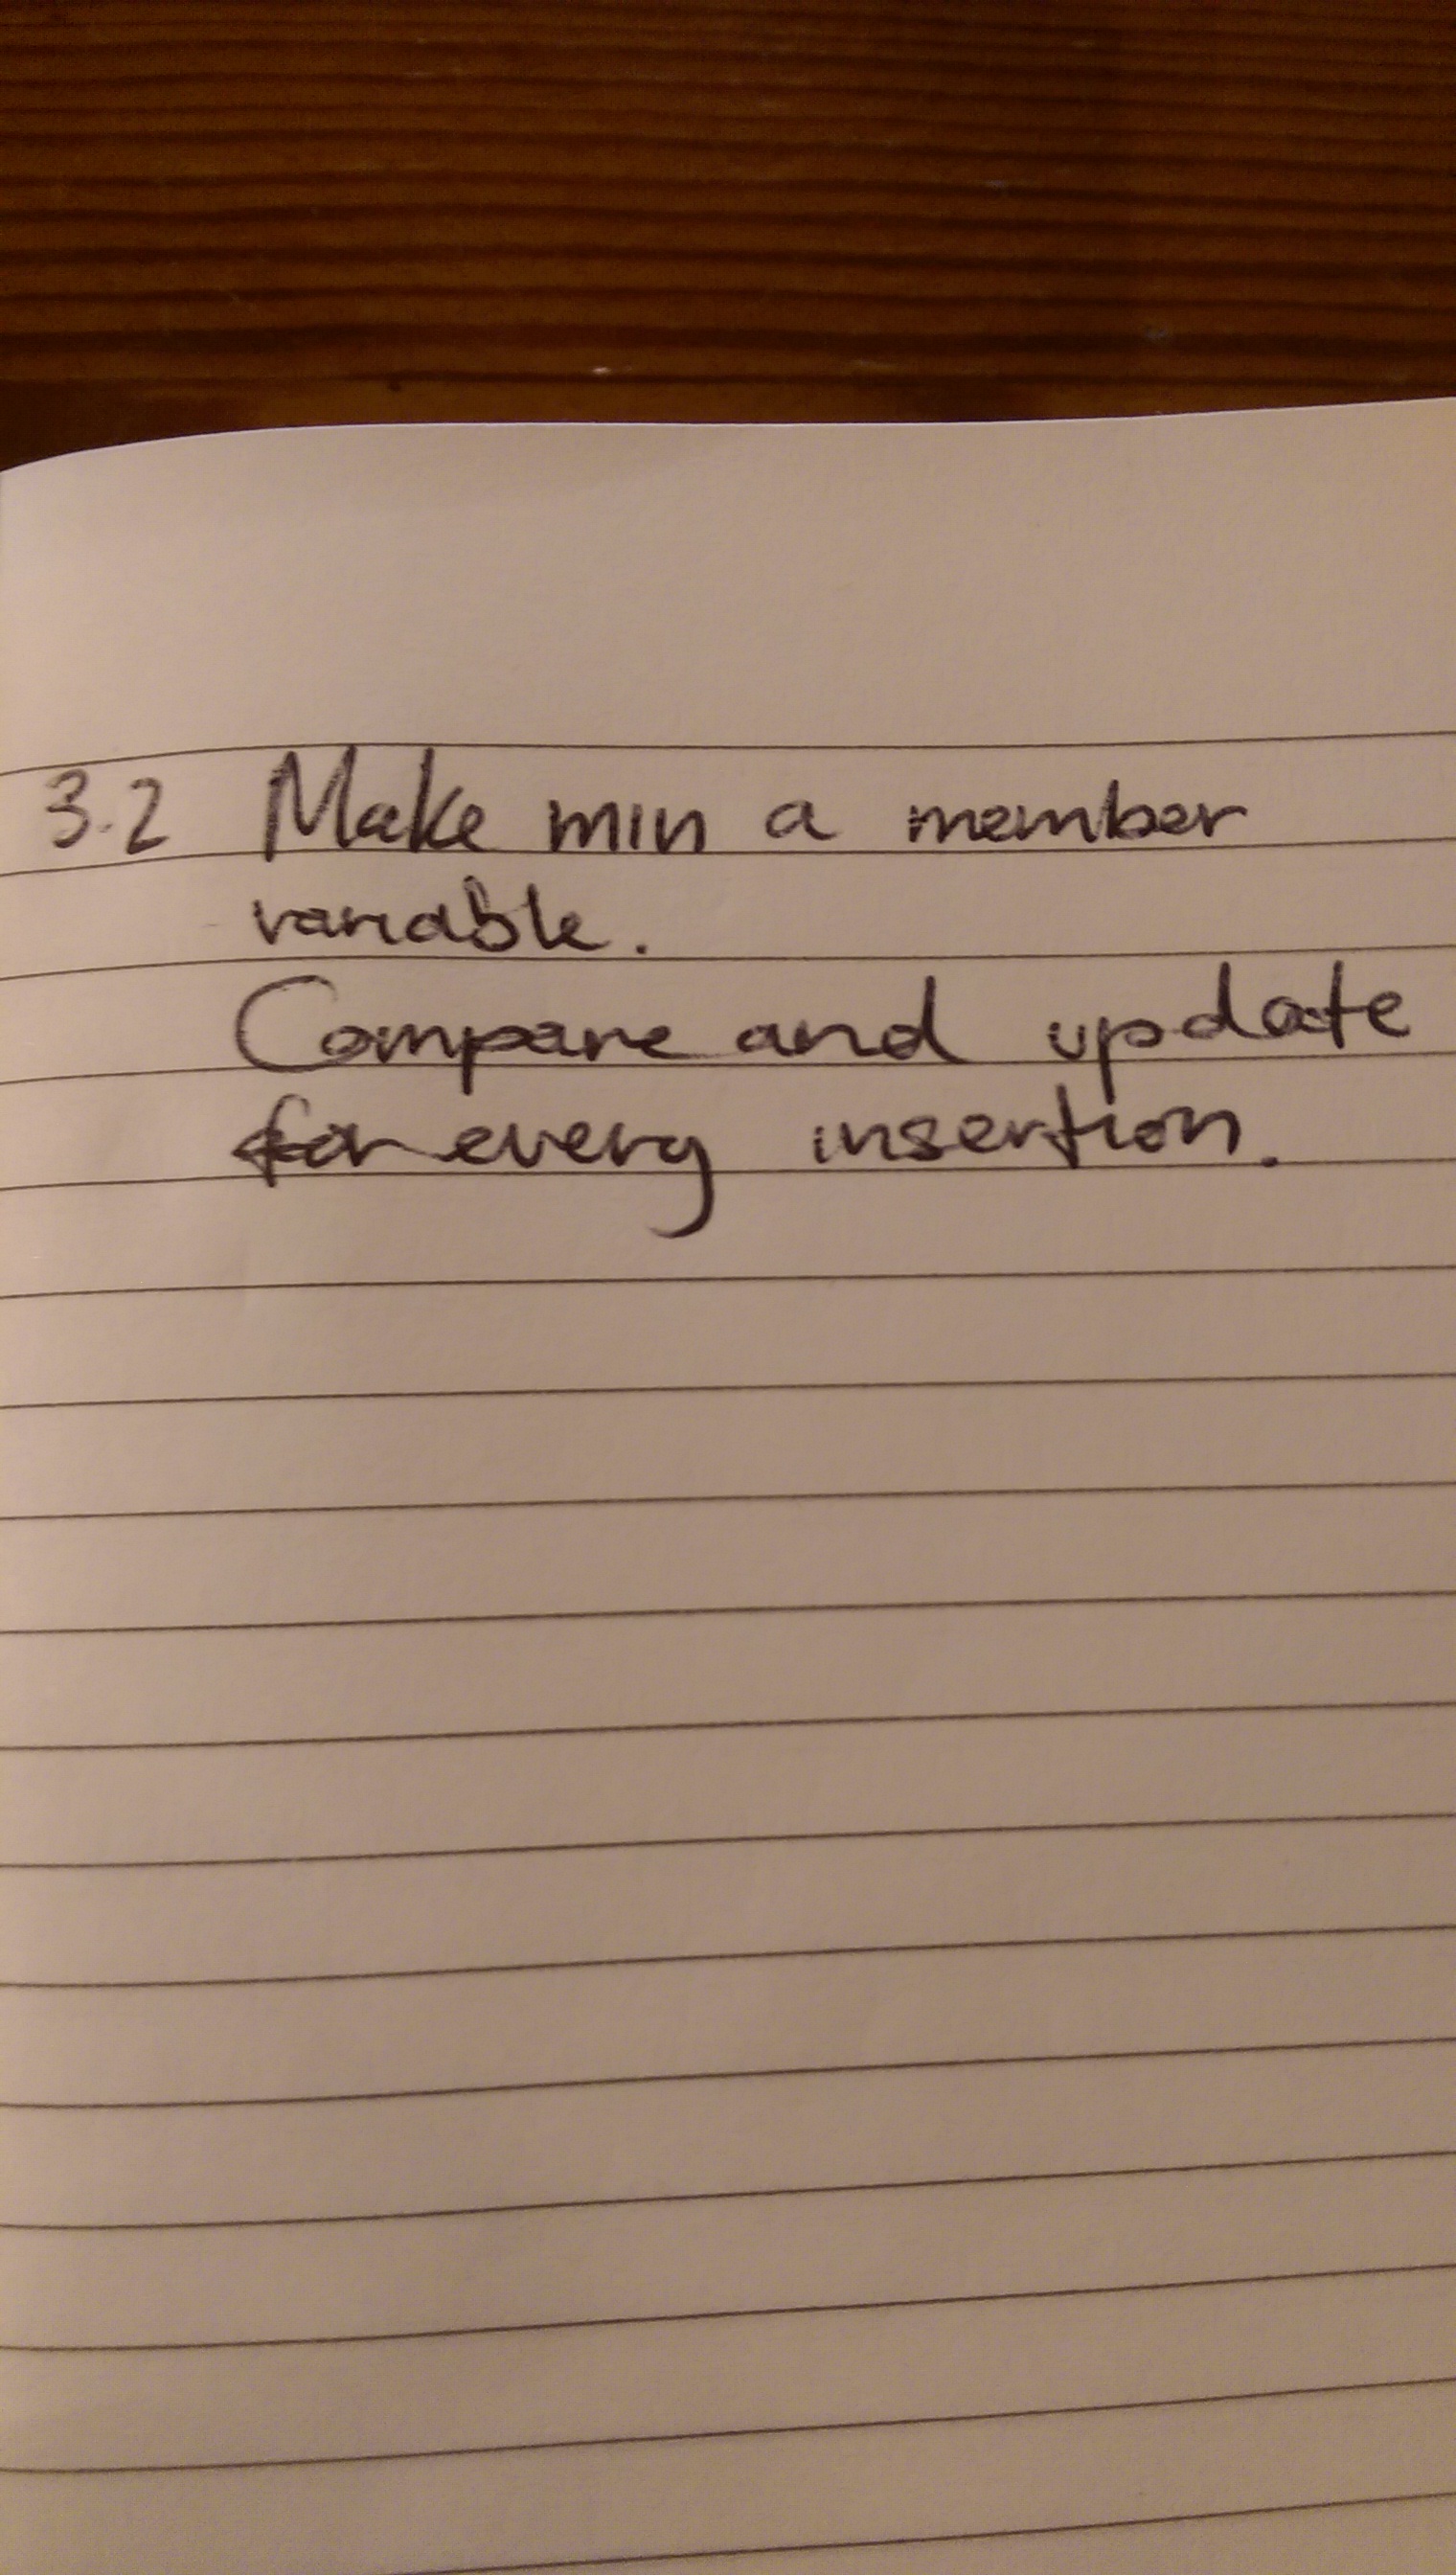 3.2 Make min a member
variable.
Compare and update
for every insertion.